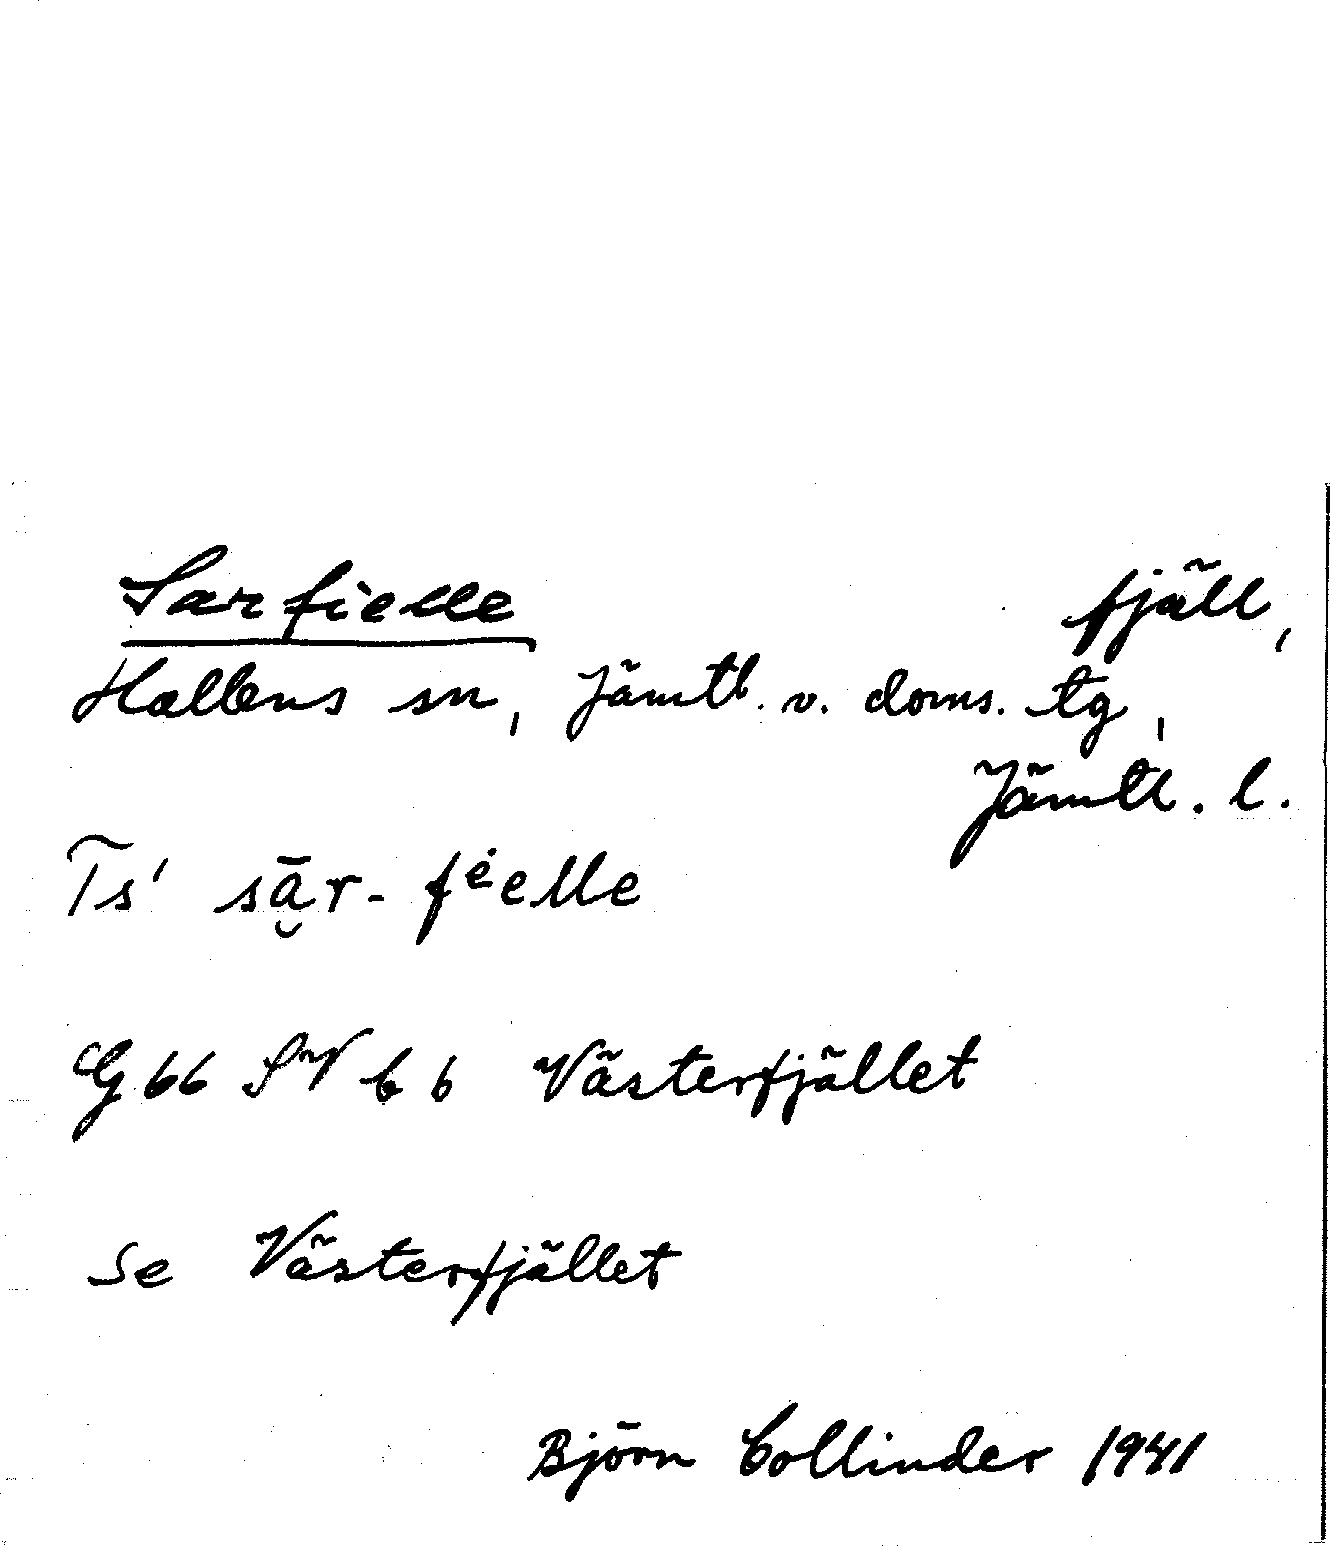 Sarfielle fjäll,
Hallens sn, Jämtl. v. doms. tg,
Jämtl. l.
Ts' sā̮r-fėelle
G66 SV b 6 Västerfjället
se Västerfjället
Björn Collinder 1941